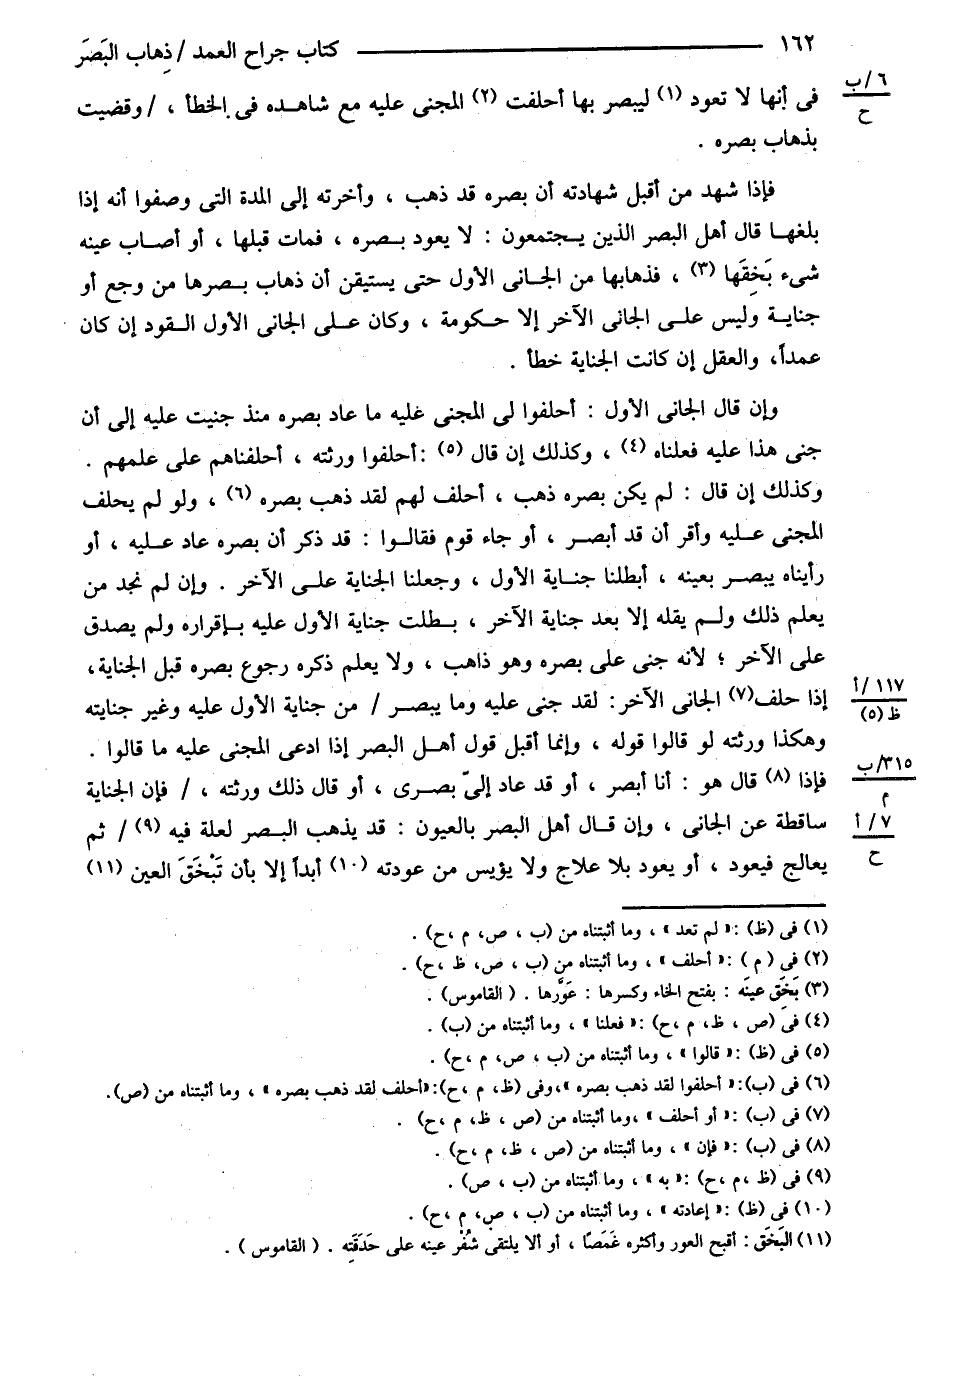 ١٦٢ ــــــــــ كتاب جراح العمد / ذِهاب البَصَر
٦/ب
ح
فى أنها لا تعود (١) ليبصر بها أحلفت (٢) المجنى عليه مع شاهـده فى الخطأ ، / وقضيت
بذهاب بصره .
فإذا شهد من أقبل شهادته أن بصره قد ذهب ، وأخرته إلى المدة التى وصفوا أنه إذا
بلغهـا قال أهل البصر الذين يـجتمعون : لا يعود بـصره ، فمات قبلها ، أو أصـاب عينه
شىء بَخِقَها (٣) ، فذهابها من الجـانى الأول حتى يستيقن أن ذهاب بـصرها من وجع أو
جنايـة وليس علـى الجانى الآخر إلا حـكومة ، وكان عـلى الجانى الأول الـقود إن كان
عمداً، والعقل إن كانت الجناية خطأ .
وإن قال الجانى الأول : أحلفوا لى المجنى عليه ما عاد بصره منذ جنيت عليه إلى أن
جنى هذا عليه فعلناه (٤) ، وكذلك إن قال (٥) :أحلفوا ورثته ، أحلفناهم على علمهم .
وكذلك إن قال : لم يكن بصره ذهب ، أحلف لهم لقد ذهب بصره (٦) ، ولو لم يحلف
المجنى عـليه وأقر أن قد أبصـر ، أو جاء قوم فقالـوا : قد ذكر أن بصره عاد عـليه ، أو
رأيناه يبصـر بعينه ، أبطلنا جنـاية الأول ، وجعلنا الجناية علـى الآخر . وإن لم نجد من
يعلم ذلك ولـم يقله إلا بعد جناية الآخر ، بـطلت جناية الأول عليه بـإقراره ولم يصدق
على الآخر ؛ لأنه جنى على بصره وهو ذاهب ، ولا يعلم ذكره رجوع بصره قبل الجناية،
١١٧/أ
ظ (٥)
إذا حلف(٧) الجانى الآخر: لقد جنى عليه وما يبصـر / من جناية الأول عليه وغير جنايته
وهكذا ورثته لو قالوا قوله ، وإنما أقبل قول أهـل البصر إذا ادعى المجنى عليه ما قالوا .
٣١٥/ب
م
فإذا (٨) قال هو : أنا أبصر ، أو قد عاد إلىّ بصرى ، أو قال ذلك ورثته ، / فإن الجناية
٧/أ
ح
ساقطة عن الجانى ، وإن قـال أهل البصر بالعيون : قد يذهب البـصر لعلة فيه (٩) / ثم
يعالج فيعود ، أو يعود بلا علاج ولا يؤيس من عودته (١٠) أبداً إلا بأن تَبْخَقَ العين (١١)
(١) فى (ظ) :« لم تعد » ، وما أثبتناه من (ب ، ص، م ،ح) .
(٢) فى ( م ) :« أحلف » ، وما أثبتناه من (ب ، ص، ظ ،ح) .
(٣) بَخَقِ عينَه : بفتح الخاء وكسرها : عَوَّرها . ( القاموس) .
(٤) فى (ص ، ظ، م ،ح) :« فعلنا » ، وما أثبتناه من (ب) .
(٥) فى (ظ) :« قالوا » ، وما أثبتناه من (ب ، ص، م ،ح) .
(٦) فى (ب):« أحلفوا لقد ذهب بصره »،وفى (ظ، م ،ح):«أحلف لقد ذهب بصره » ، وما أثبتناه من (ص).
(٧) فى (ب) :« أو أحلف » ،وما أثبتناه من (ص ، ظ، م ،ح) .
(٨) فى (ب) :« فإن » ، وما أثبتناه من (ص ، ظ، م ،ح) .
(٩) فى (ظ ،م ،ح) :« به » ، وما أثبتناه من (ب ، ص) .
(١٠) فى (ظ) :« إعادته » ، وما أثبتناه من (ب ، ص، م ،ح) .
(١١) البَخَق : أقبح العور وأكثره غَمَصًا ، أو ألا يلتقى شُفْر عينه على حَدَقَتِه . ( القاموس ) .